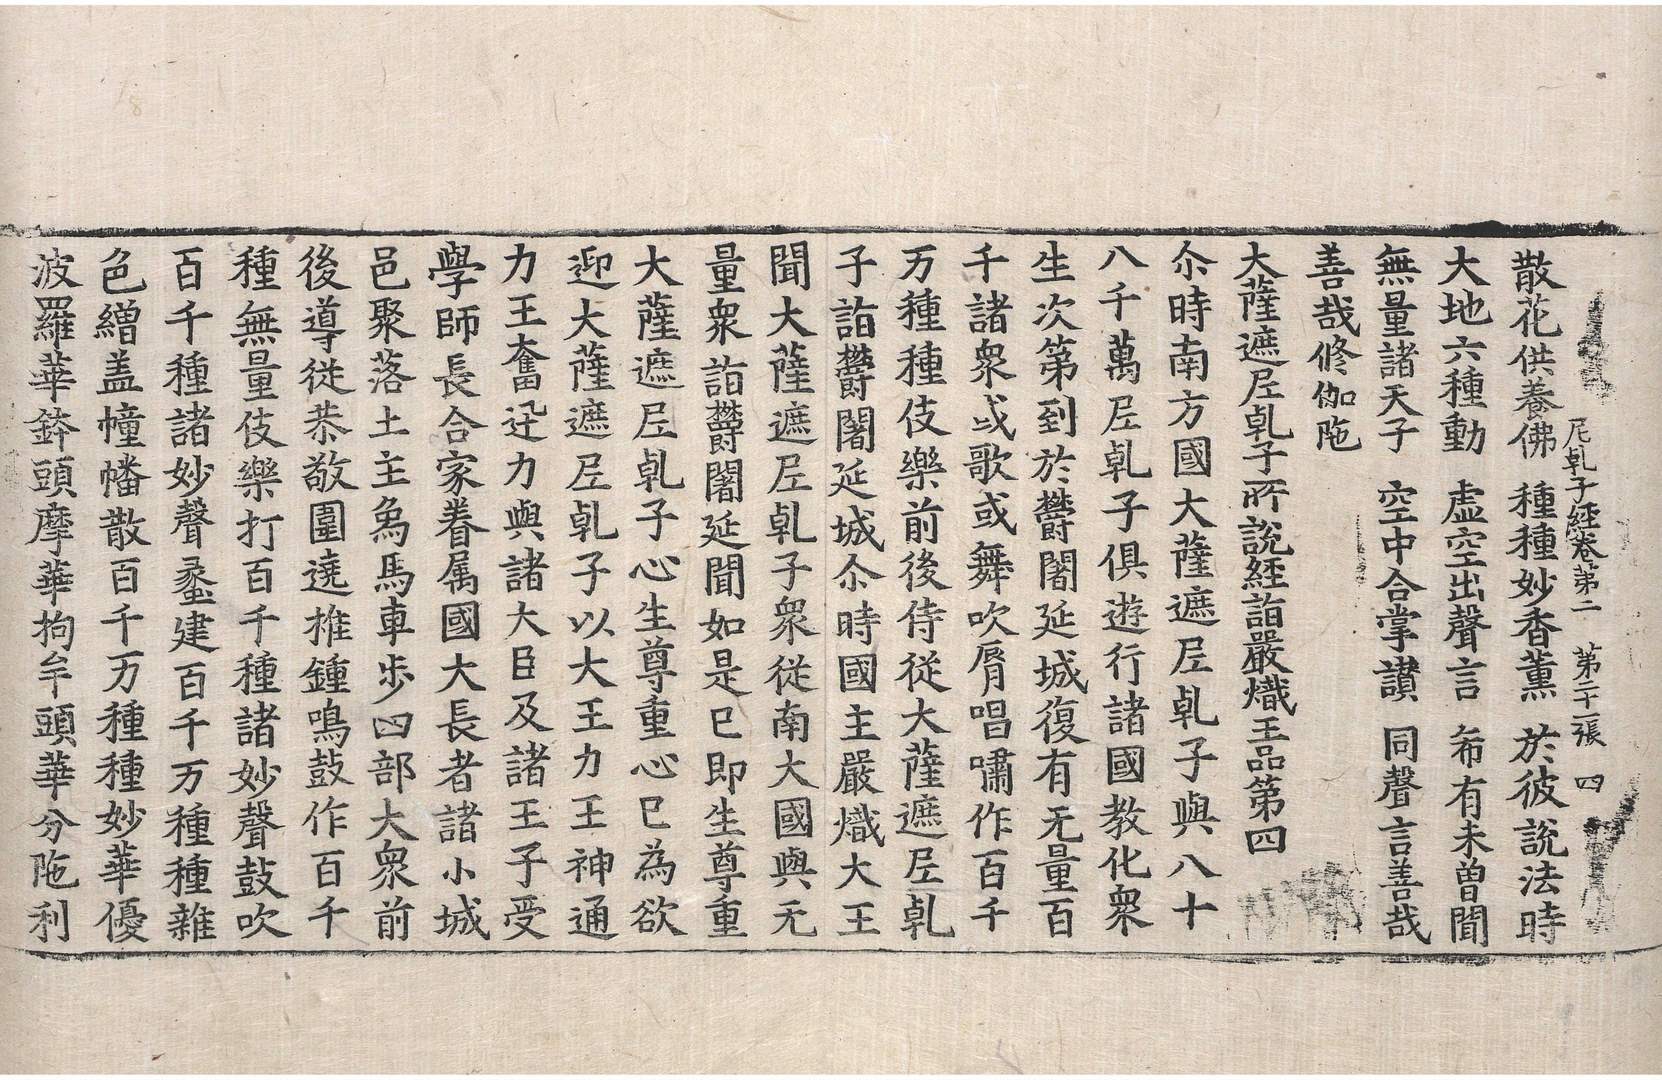 尼乹子經卷第二　第二十一張　四
散花供養佛　種種妙香薰　於彼說法時
大地六種動　虛空出聲言　希有未曾聞
無量諸天子　空中合掌讃　同聲言善哉
善哉修伽陁
大薩遮𡰱乹子所說經詣嚴熾王品第四
尒時南方國大薩遮𡰱乹子與八十
八千萬𡰱乹子俱遊行諸國教化衆
生次第到於欝闍延城復有无量百
千諸衆或歌或舞吹脣唱嘯作百千
万種種伎樂前後侍從大薩遮𡰱乹
子詣欝闍延城尒時國主嚴熾大王
聞大薩遮𡰱乹子衆從南大國與无
量衆詣欝闍延聞如是已即生尊重
大薩遮𡰱乹子心生尊重心已為欲
迎大薩遮𡰱乹子以大王力王神通
力王奮迅力與諸大臣及諸王子受
學師長合家眷属國大長者諸小城
邑聚落土主象馬車步四部大衆前
後導從恭敬圍遶椎鍾鳴鼓作百千
種無量伎樂打百千種諸妙聲鼓吹
百千種諸妙聲䗍建百千万種種雜
色繒盖幢幡散百千万種種妙華優
波羅華鉢頭摩華拘牟頭華分陁利